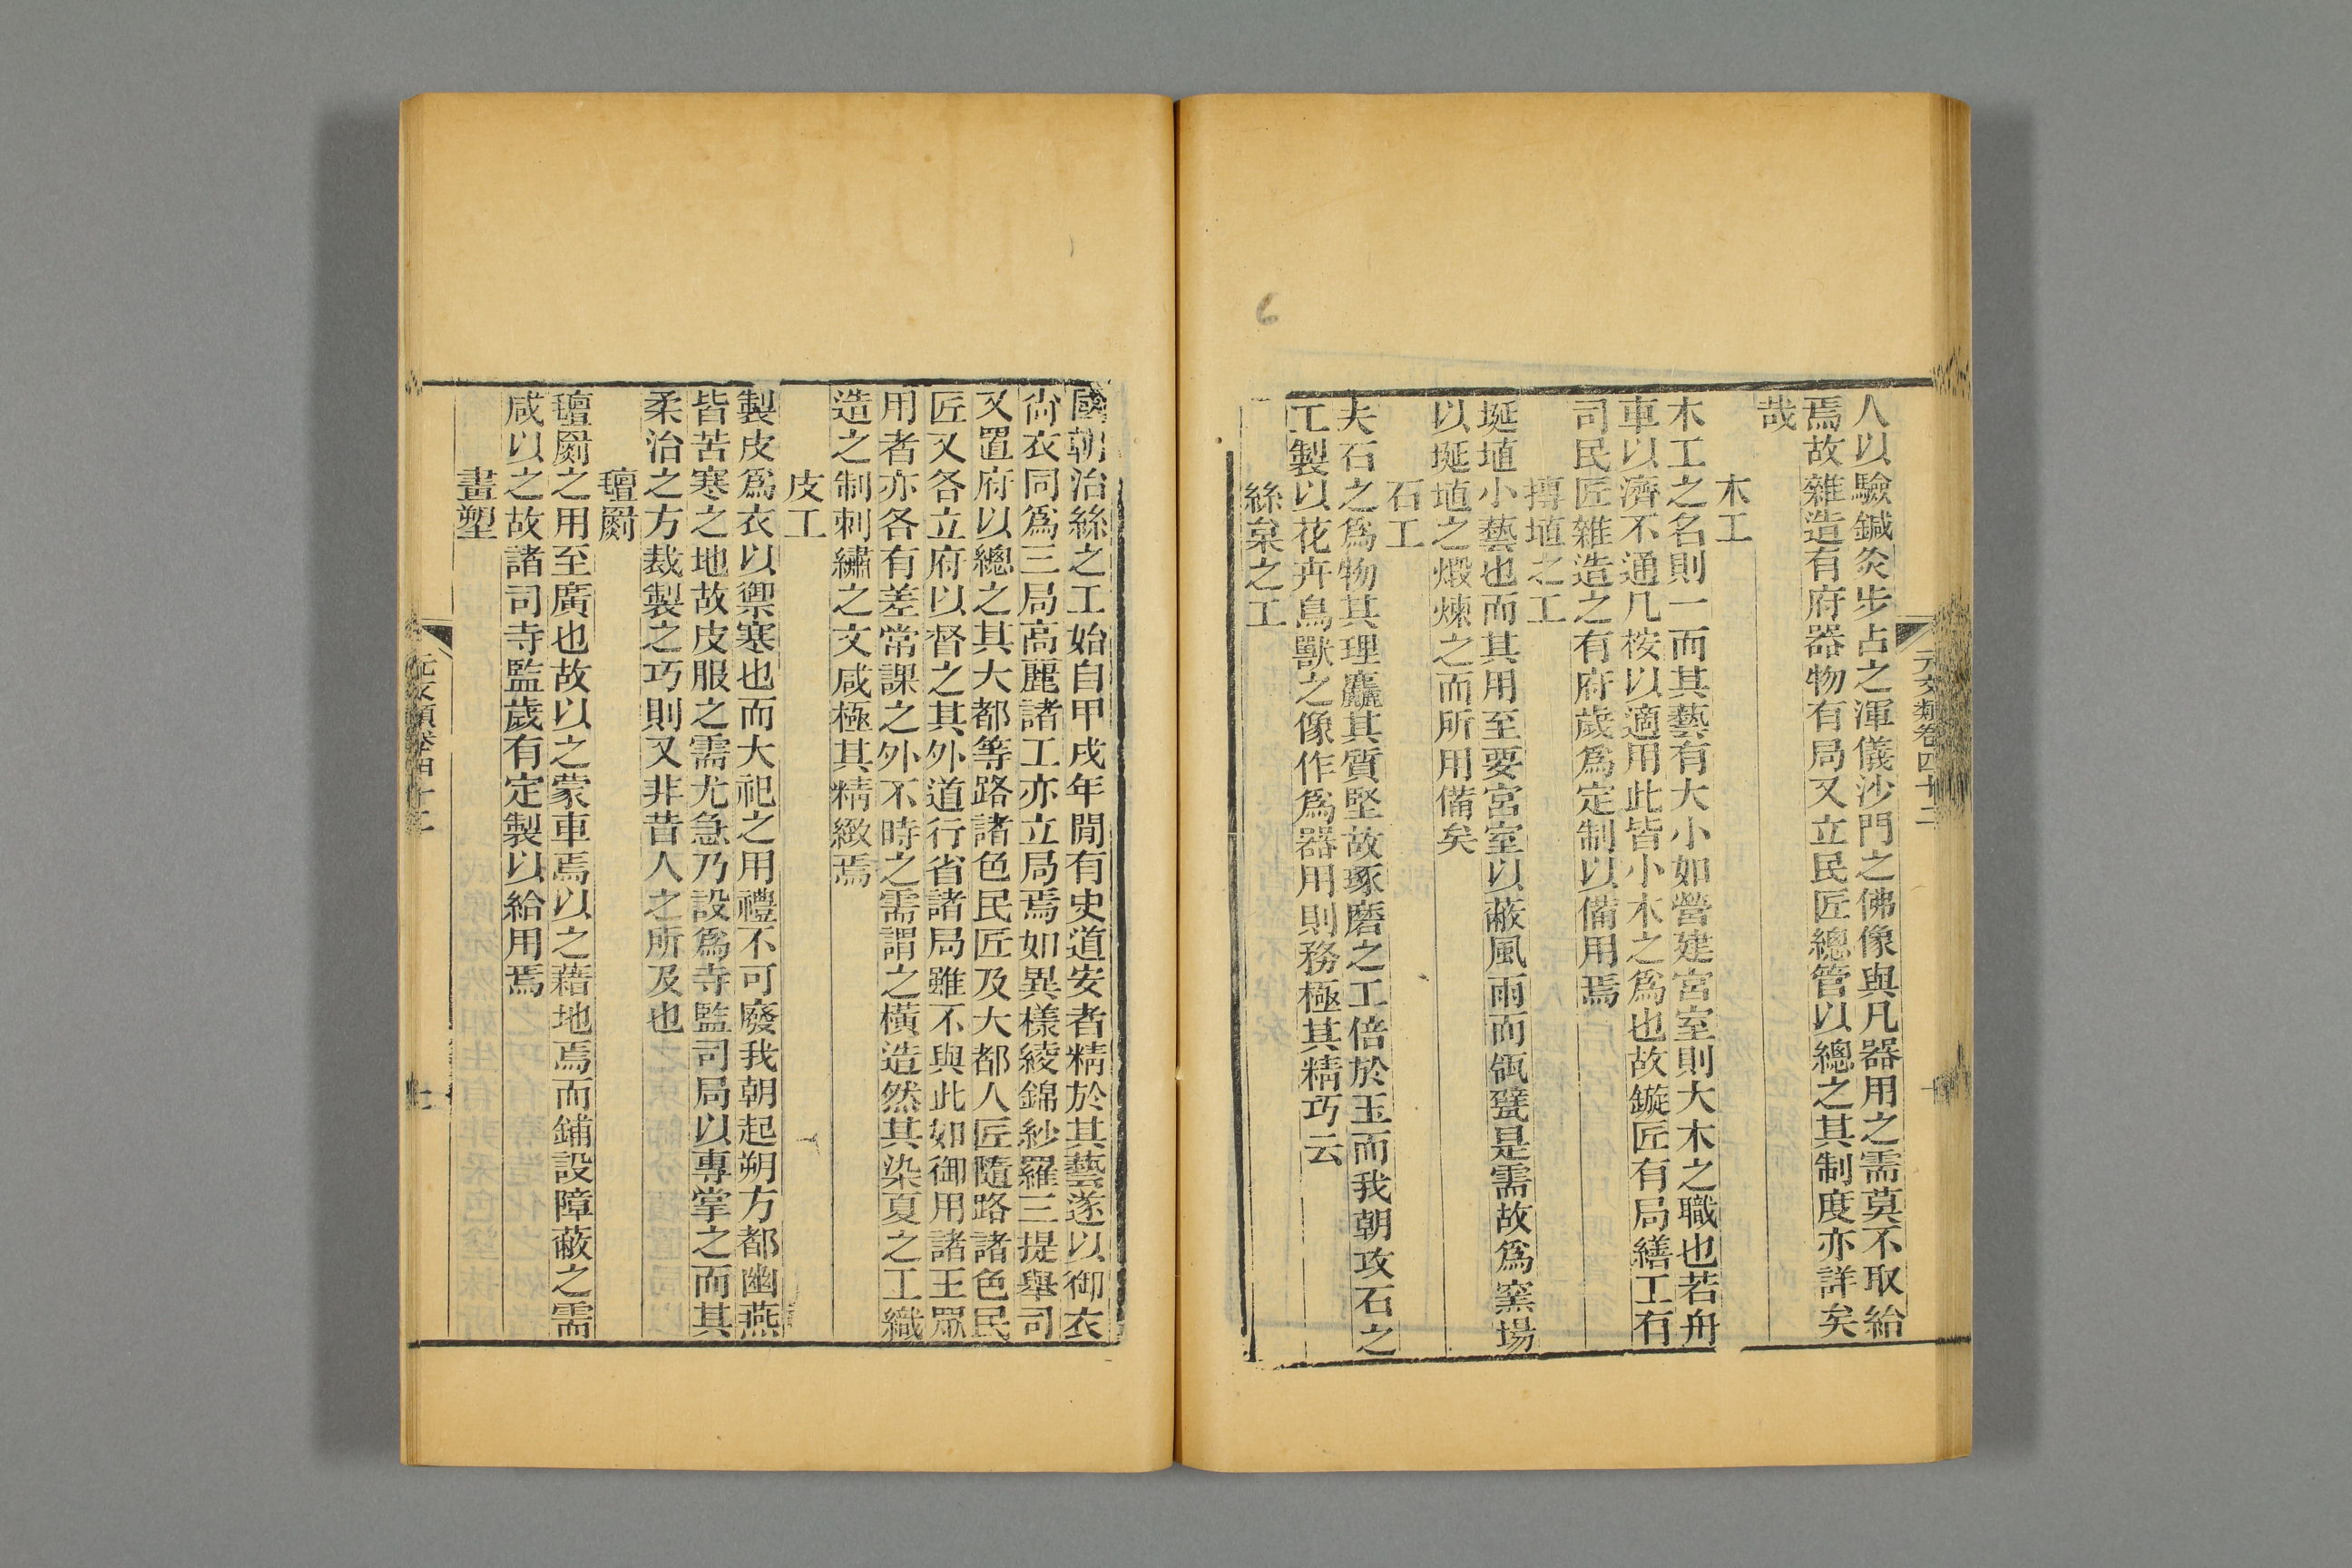 元文類卷四十二
人以驗鍼灸步占之渾儀沙門之佛像與凡器用之需莫不取給
焉故雜造有府器物有局又立民匠總管以總之其制度亦詳矣
哉
木工
木工之名則一而其藝有大小如營建宮室則大木之職也若舟
車以濟不通几桉以適用此皆小木之爲也故鏇匠有局繕工有
司民匠雜造之有府歲爲定制以備用焉
摶埴之工
埏埴小藝也而其用至要宮室以蔽風雨而瓴甓是需故爲窯場
以埏埴之煅煉之而所用備矣
石工
夫石之爲物其理麤其質堅故琢磨之工倍於玉而我朝攻石之
工製以花卉鳥獸之像作爲器用則務極其精巧云
絲枲之工
6
國朝治絲之工始自甲戌年閒有史道安者精於其藝遂以御衣
尙衣同爲三局高麗諸工亦立局焉如異樣綾錦紗羅三提舉司
又置府以總之其大都等路諸色民匠及大都人匠隨路諸色民
匠又各立府以督之其外道行省諸局雖不與此如御用諸王眾
用者亦各有差常課之外不時之需謂之橫造然其染夏之工織
造之制刺繡之文咸極其精緻焉
皮工
製皮爲衣以禦寒也而大祀之用禮不可廢我朝起朔方都幽燕
皆苦寒之地故皮服之需尤急乃設爲寺監司局以專掌之而其
柔治之方裁製之巧則又非昔人之所及也
氊罽
氊罽之用至廣也故以之蒙車焉以之藉地焉而鋪設障蔽之需
咸以之故諸司寺監歲有定製以給用焉
畫塑
元文類卷四十二
七